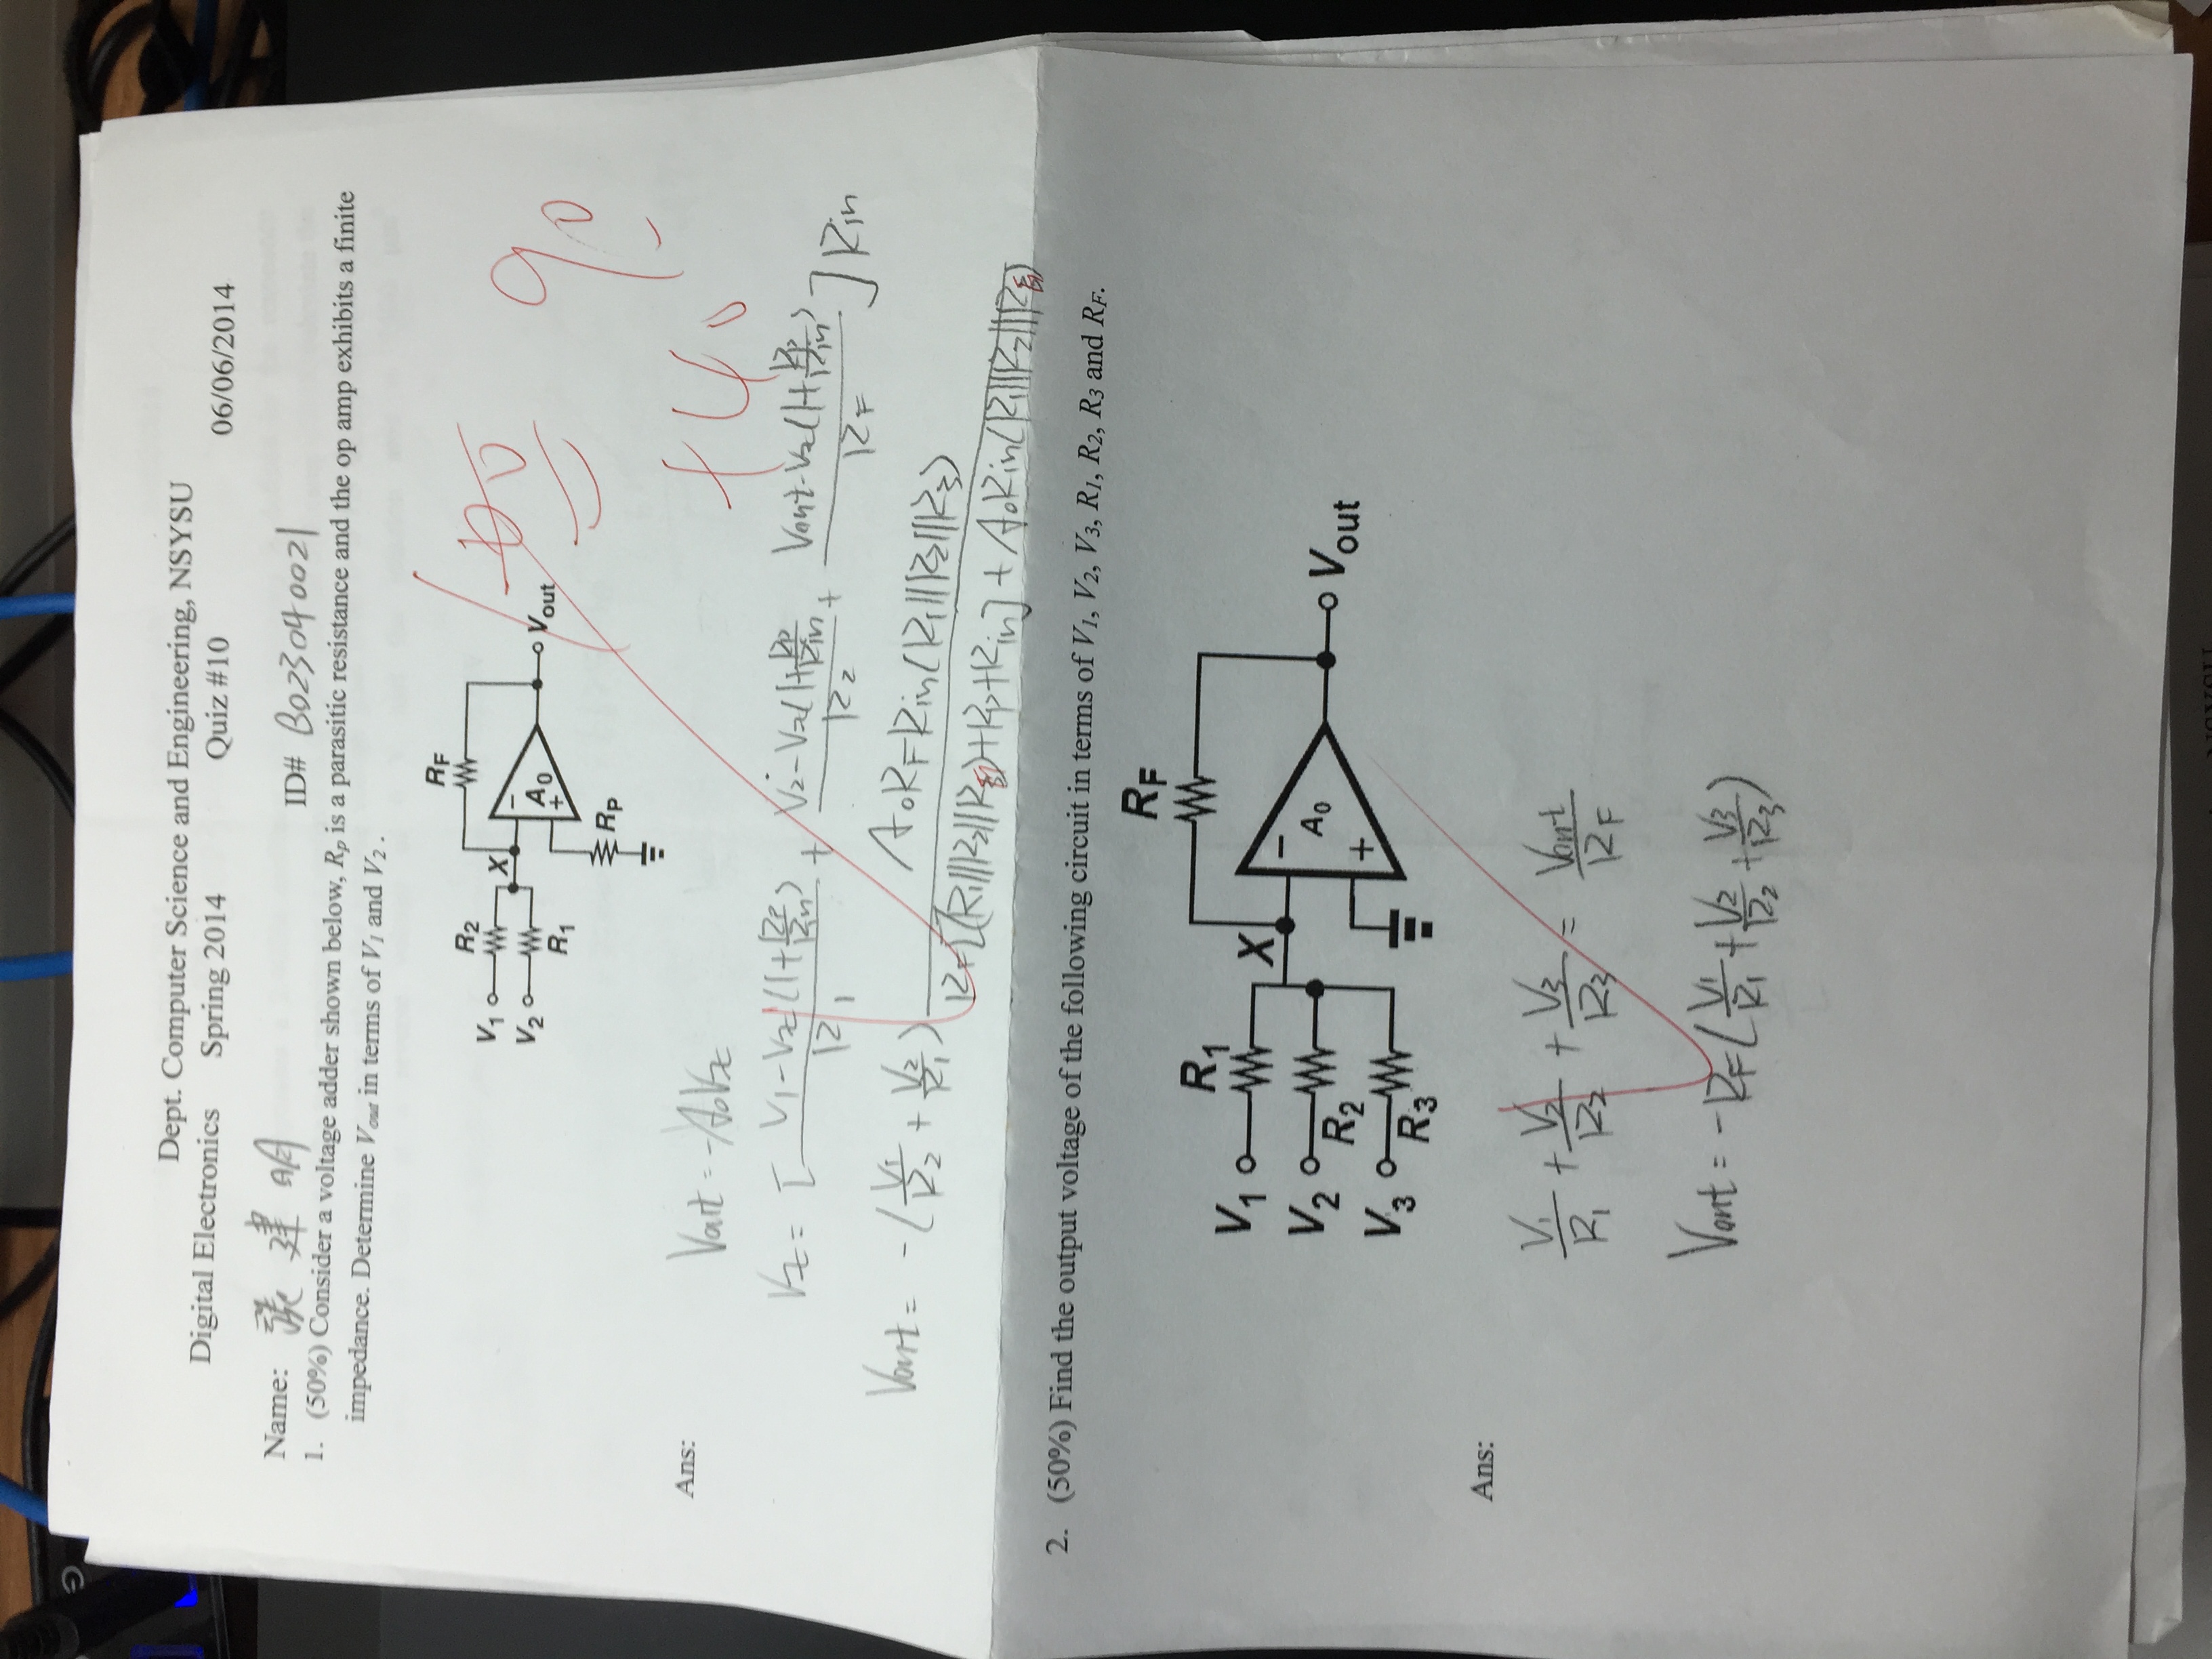 Dept. Computer Science and Engineering, NSYSU
Digital Electronics Spring 2014 Quiz #10 06/06/2014
Name: 張建明 ID# B023040021
1. (50%) Consider a voltage adder shown below, Rp is a parasitic resistance and the op amp exhibits a finite
impedance. Determine Vout in terms of V1 and V2 .
RF
R2
V1
X
V2
R1
−
A0
+
Vout
RP
90
+40
Ans:
Vout = -A0Vx
Vx = [ (V1-Vx(1+RP/Rin))/R1 + (V2-Vx(1+RP/Rin))/R2 + (Vout-Vx(1+RP/Rin))/RF ] Rin
Vout = -(V1/R2 + V2/R1) A0RFRin(R1||R2||R3) / RF[(R1||R2||RF)+RP+Rin] + A0Rin(R1||R2||RF)
2. (50%) Find the output voltage of the following circuit in terms of V1, V2, V3, R1, R2, R3 and RF.
RF
R1
V1
X
V2
R2
V3
R3
−
A0
+
Vout
Ans:
V1/R1 + V2/R2 + V3/R3 = Vout/RF
Vout = -RF(V1/R1 + V2/R2 + V3/R3)